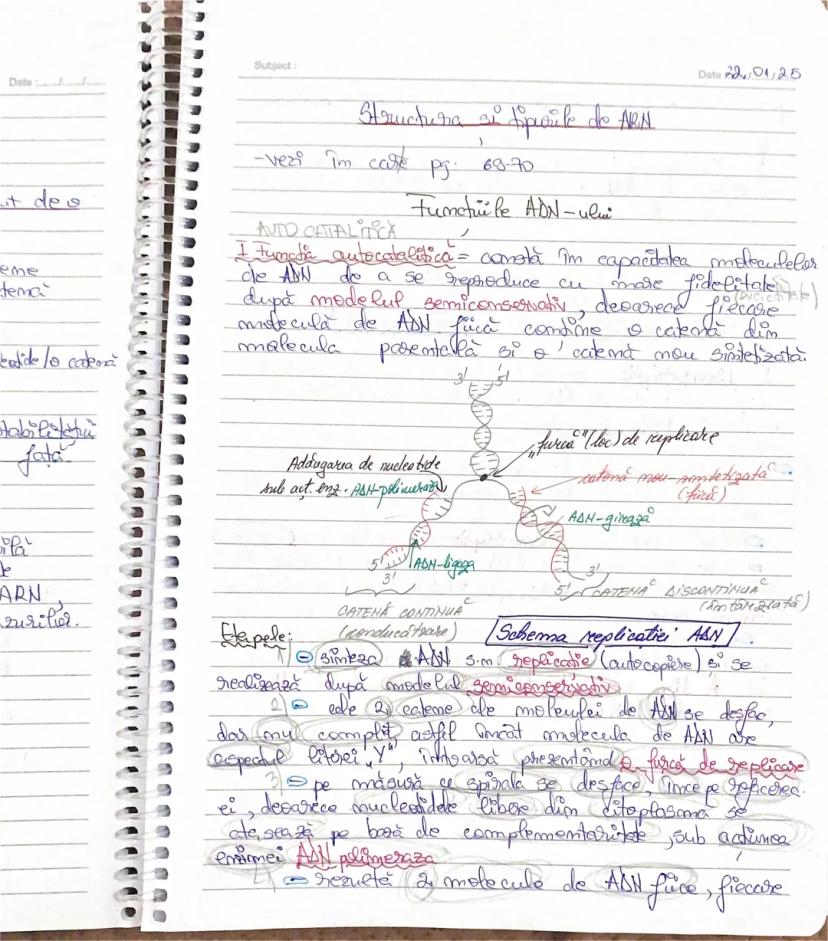 Date :
t de o
eme
temă
eotide/o catenă
tabilității
față
ARN,
zurilor.
Subject :
Date 22,01,25
Structura și tipurile de ARN
-vezi în carte pg. 68-70
Funcțiile ADN-ului
AUTOCATALITICĂ
1 Funcția autocatalitică = constă în capacitatea moleculelor
de ADN de a se reproduce cu mare fidelitate
după modelul semiconservativ, deoarece fiecare
moleculă de ADN fiică conține o catenă din
molecula parentală și o catenă nou sintetizată.
3' 5'
„furcă" (loc) de replicare
Adăugarea de nucleotide
sub acț. enz. ADN-polimerază
catenă nou sintetizată
(fiică)
ADN-girază
5'
3'
ADN-ligaza
3'
5'
CATENĂ DISCONTINUĂ
(întârziată)
CATENĂ CONTINUĂ
(conducătoare)
Etapele:
Schema replicației ADN
1) - sinteza ADN s.n replicație (autocopiere) și se
realizează după modelul semiconservativ
2) - cele 2 catene ale moleulei de ADN se desfac,
dar nu complet astfel încât molecula de ADN are
aspectul literei „Y", întoarsă prezentând o furcă de replicare
3) - pe măsură ce spirala se desface, începe refacerea
ei, deoarece nucleotidele libere din citoplasmă se
atașează pe bază de complementaritate, sub acțiunea
enzimei ADN polimeraza
4) - rezultă 2 molecule de ADN fiice, fiecare